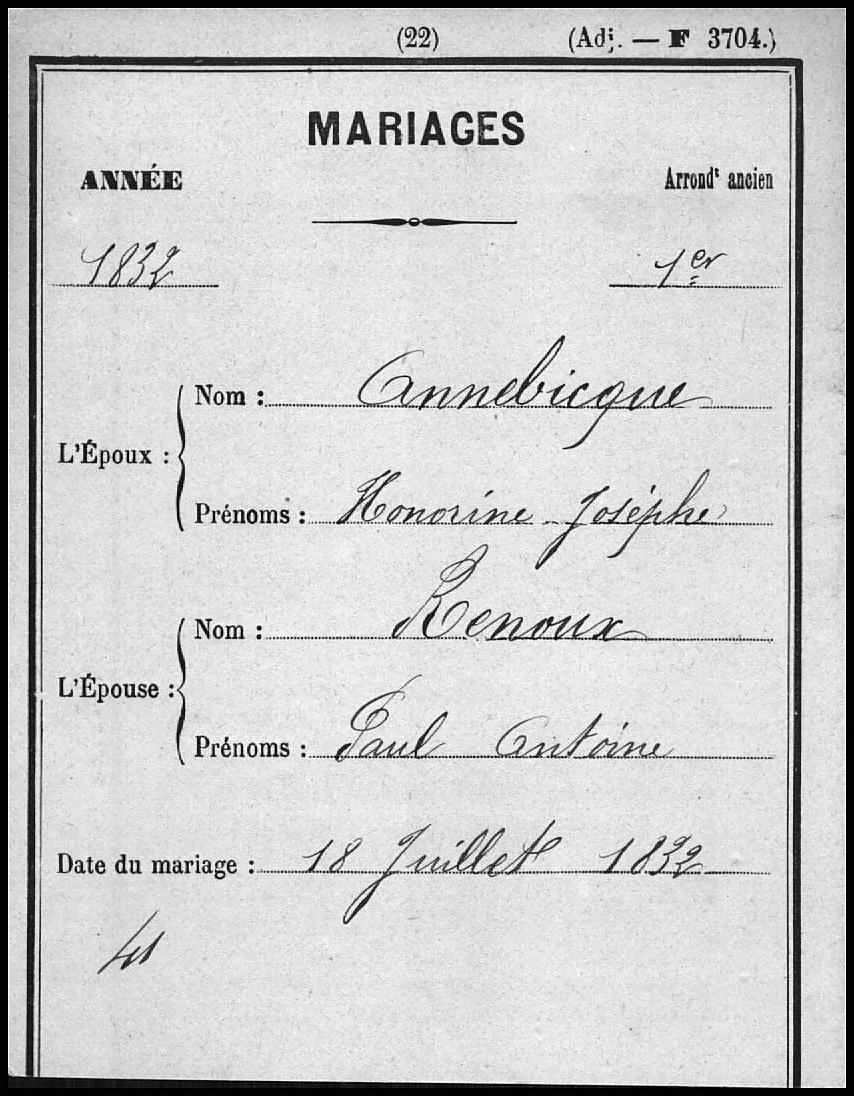 (22) (Adj. — F 3704.)
MARIAGES
ANNÉE Arrondt ancien
1832 1er
Nom : Annebicque
L'Époux :
Prénoms : Honorine Josèphe
Nom : Renoux
L'Épouse :
Prénoms : Paul Antoine
Date du mariage : 18 Juillet 1832